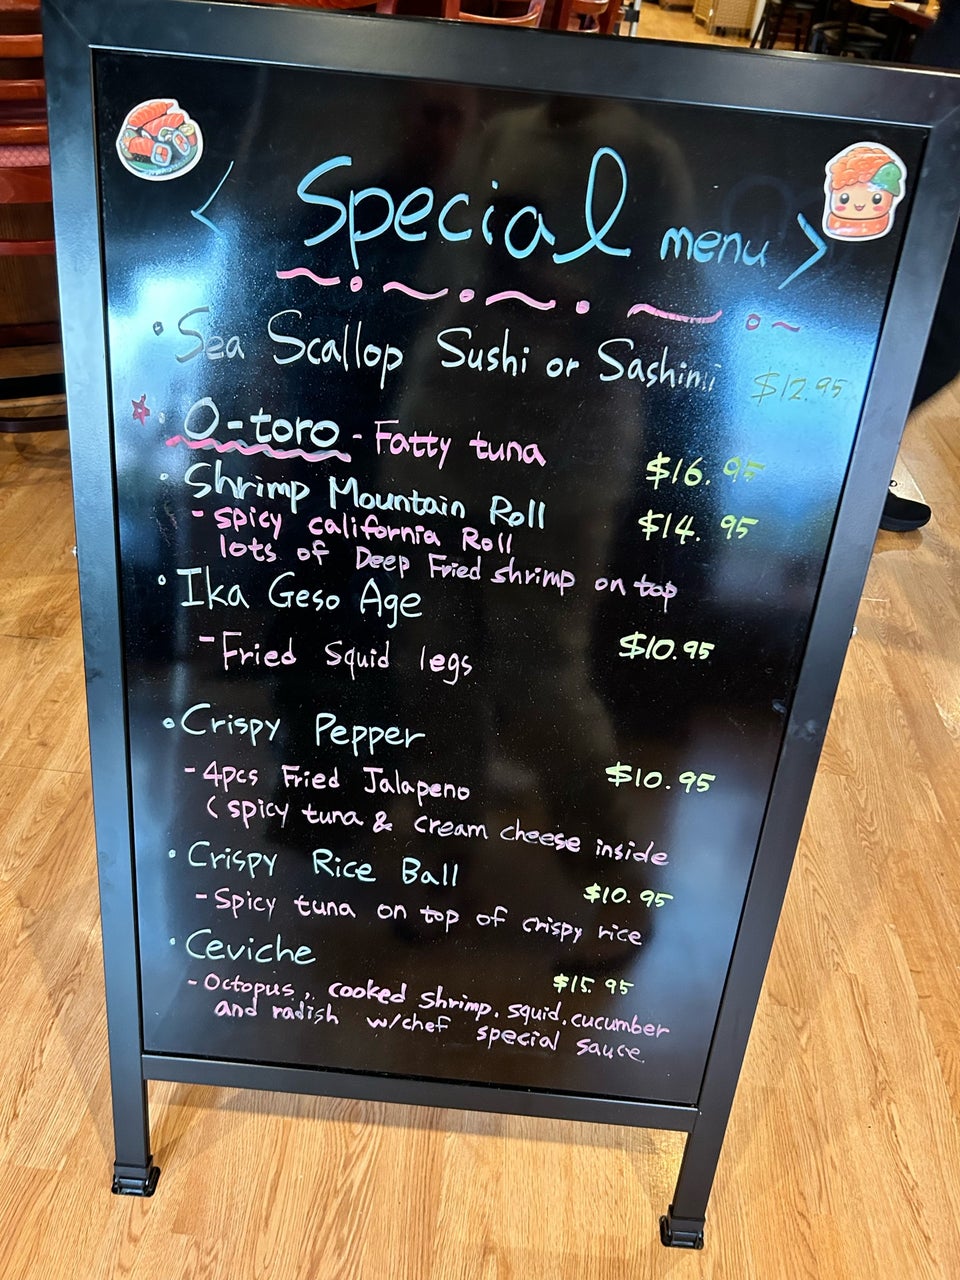 < Special menu >
• Sea Scallop Sushi or Sashimi $12.95
• O-toro - Fatty tuna $16.95
• Shrimp Mountain Roll $14.95
- spicy california Roll
lots of Deep Fried shrimp on top
• Ika Geso Age
- Fried Squid legs $10.95
• Crispy Pepper
- 4pcs Fried Jalapeno $10.95
( spicy tuna & cream cheese inside
• Crispy Rice Ball $10.95
- Spicy tuna on top of crispy rice
• Ceviche $15.95
- Octopus, cooked shrimp. squid. cucumber
and radish w/chef special sauce.